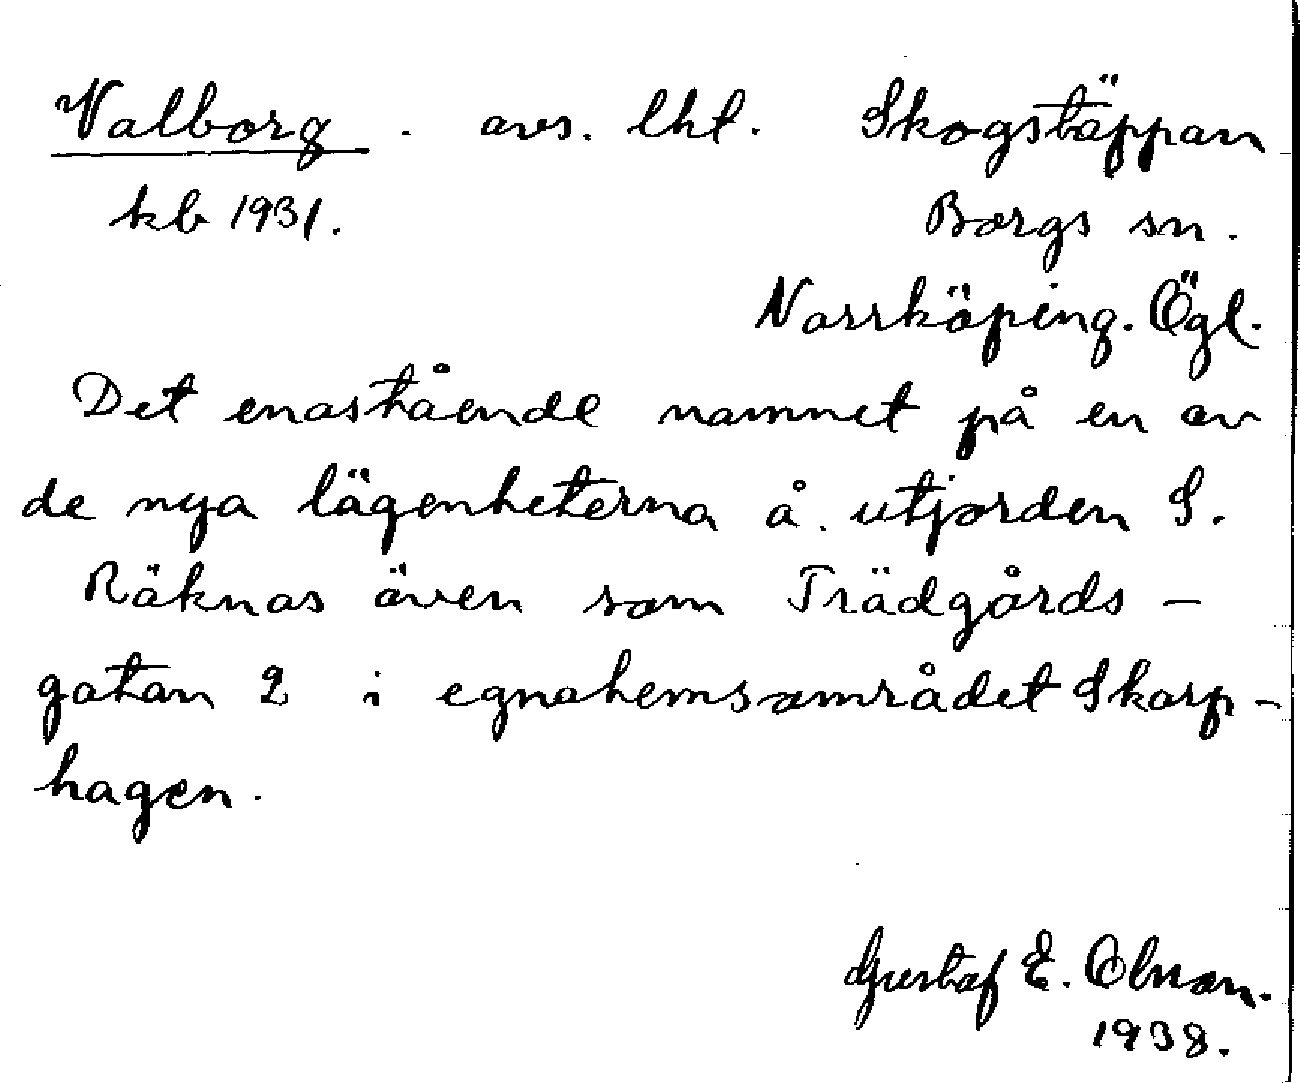 Valborg. avs. lht. Skogstäppan
kb 1931. Borgs sn.
Norrköping. Ögl.
Det enastående namnet på en av
de nya lägenheterna å utjorden S.
Räknas även som Trädgårds-
gatan 2 i egnahemsområdet Skarp-
hagen.
Gustaf E. Olman.
1938.